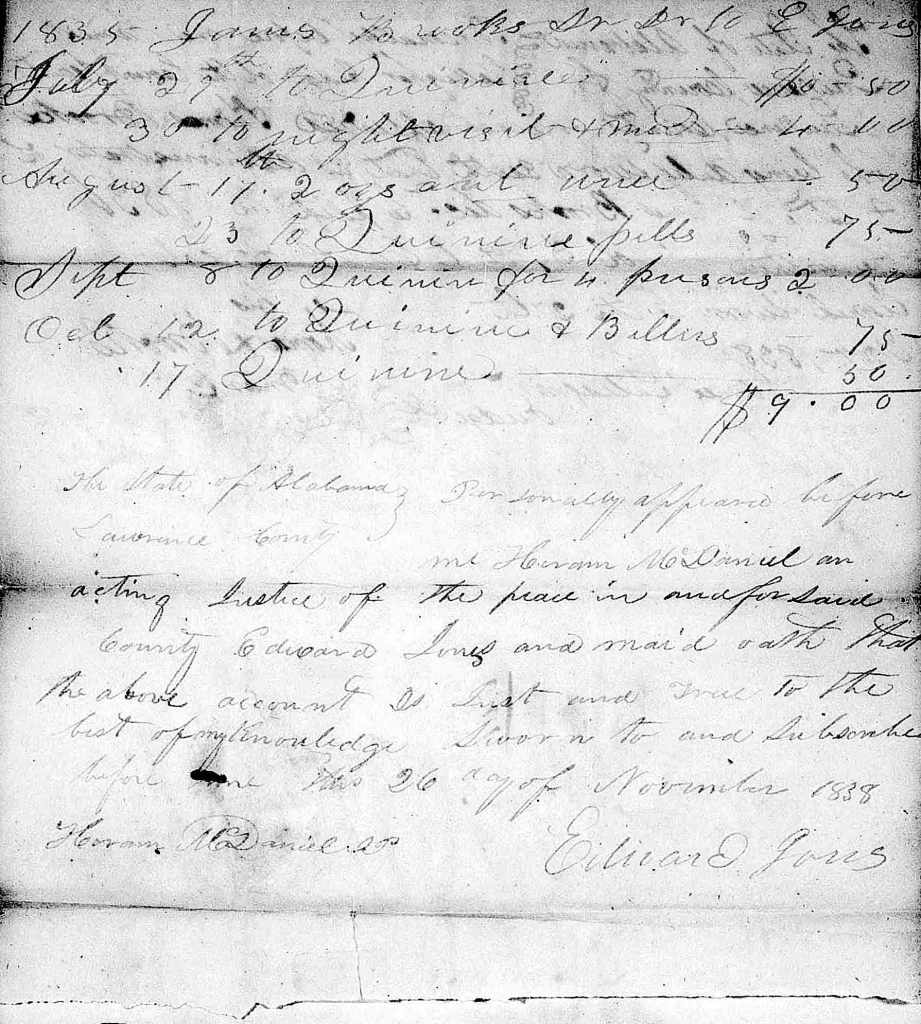 1835 James Brooks Sr Dr to E Jones
July 29th to Quinine $0 50
30 to night visit & med 4 00
August 17th. 2 ozs ant wine . 50
23 to Quinine pills 75
Sept 8 to Quinin for 4 persons 2 00
Oct 12 to Quinine & Bitters 75
17 Quinine 50
$9.00
The State of Alabama Personally appeared before
Lawrence County me Horam McDaniel an
acting Justice of the peace in and for said
County Edward Jones and maid oath that
the above account Is Just and True to the
best of my Knowledge Sworn to and subscribe
before me this 26 day of November 1838
Horam McDaniel JP Edward Jones